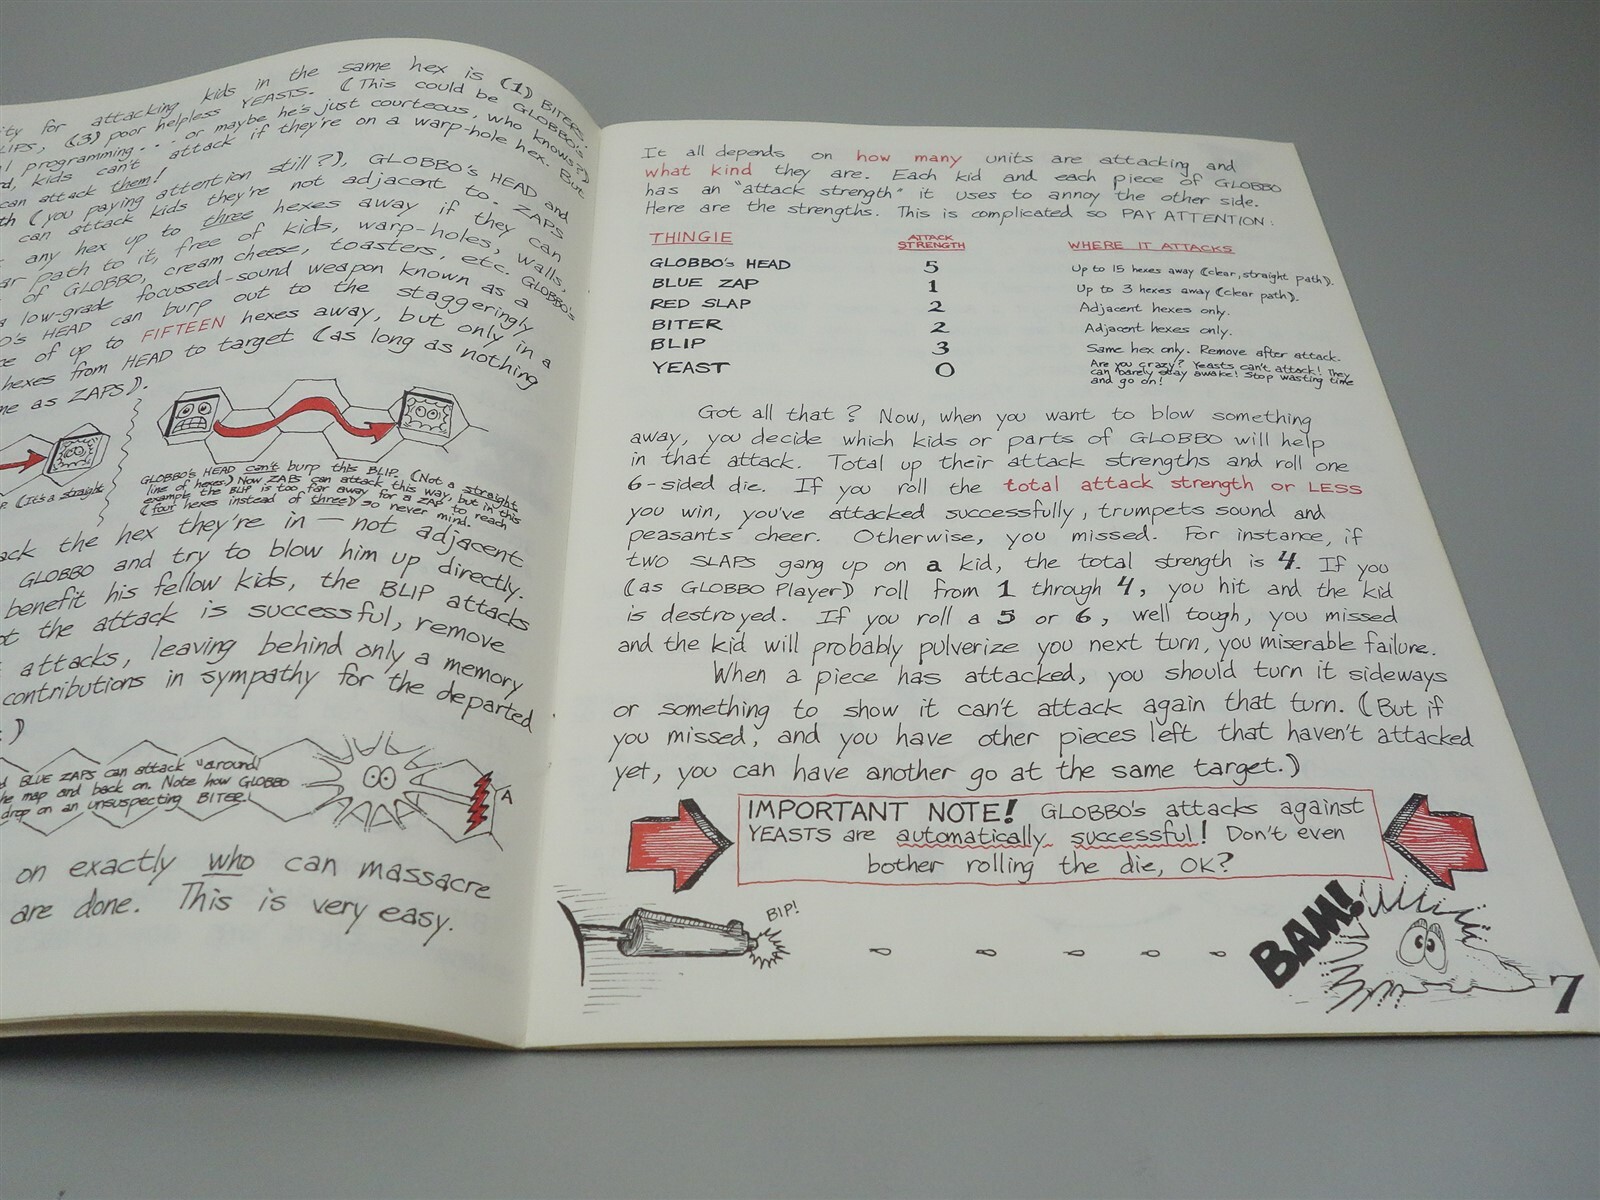 ity for attacking kids in the same hex is (1) BITERS,
LIPS, (3) poor helpless YEASTS. (This could be GLOBBO's
l programming... or maybe he's just courteous, who knows?)
rd, kids can't attack if they're on a warp-hole hex. But
can attack them!
th (you paying attention still?), GLOBBO's HEAD and
can attack kids they're not adjacent to. ZAPS
any hex up to three hexes away if they can
ar path to it, free of kids, warp-holes, walls,
of GLOBBO, cream cheese, toasters, etc. GLOBBO's
a low-grade focussed-sound weapon known as a
O's HEAD can burp out to the staggeringly
ce of up to FIFTEEN hexes away, but only in a
hexes from HEAD to target (as long as nothing
me as ZAPS).
(It's a straight
GLOBBO'S HEAD can't burp this BLIP. (Not a straight
line of hexes.) Now ZAPS can attack this way, but in this
example the BLIP is too far away for a ZAP to reach
(four hexes instead of three) so never mind.
ack the hex they're in — not adjacent
GLOBBO and try to blow him up directly.
benefit his fellow kids, the BLIP attacks
ot the attack is successful, remove
attacks, leaving behind only a memory
contributions in sympathy for the departed
.)
d BLUE ZAPS can attack "around"
he map and back on. Note how GLOBBO
drop on an unsuspecting BITER!
A
on exactly who can massacre
are done. This is very easy.
It all depends on how many units are attacking and
what kind they are. Each kid and each piece of GLOBBO
has an "attack strength" it uses to annoy the other side.
Here are the strengths. This is complicated so PAY ATTENTION:
THINGIE ATTACK STRENGTH WHERE IT ATTACKS
GLOBBO's HEAD 5 Up to 15 hexes away (clear, straight path).
BLUE ZAP 1 Up to 3 hexes away (clear path).
RED SLAP 2 Adjacent hexes only.
BITER 2 Adjacent hexes only.
BLIP 3 Same hex only. Remove after attack.
YEAST 0 Are you crazy? Yeasts can't attack! They
can barely stay awake! Stop wasting time
and go on!
Got all that? Now, when you want to blow something
away, you decide which kids or parts of GLOBBO will help
in that attack. Total up their attack strengths and roll one
6-sided die. If you roll the total attack strength or LESS
you win, you've attacked successfully, trumpets sound and
peasants cheer. Otherwise, you missed. For instance, if
TWO SLAPS gang up on a kid, the total strength is 4. If you
(as GLOBBO Player) roll from 1 through 4, you hit and the kid
is destroyed. If you roll a 5 or 6, well tough, you missed
and the kid will probably pulverize you next turn, you miserable failure.
When a piece has attacked, you should turn it sideways
or something to show it can't attack again that turn. (But if
you missed, and you have other pieces left that haven't attacked
yet, you can have another go at the same target.)
IMPORTANT NOTE! GLOBBO's attacks against
YEASTS are automatically successful! Don't even
bother rolling the die, OK?
BIP!
BAM!
7